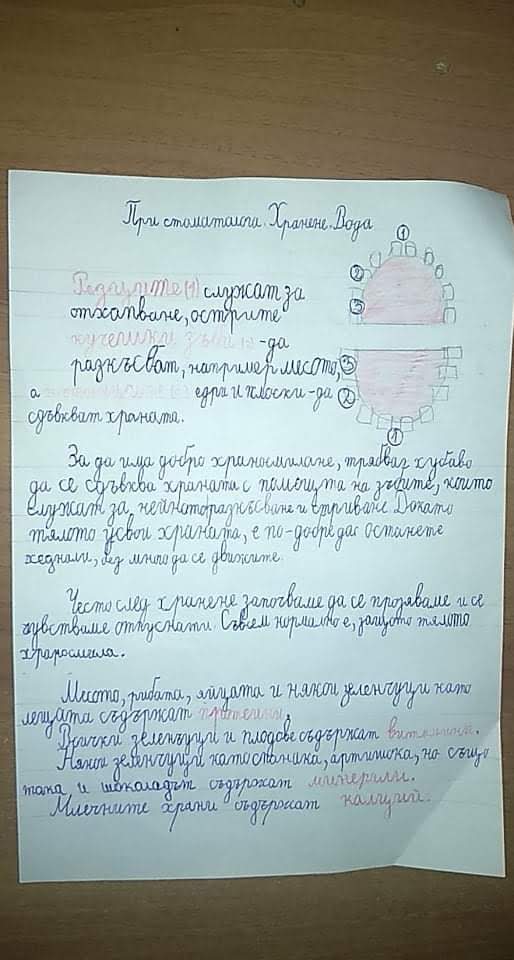 При стоматолога. Хранене. Вода
Резците (1) служат за
отхапване, острите
кучешки зъби (2) -да
разкъсват, например месото,
а едри и плоски -да
сдъвкват храната.
1
2
3
3
2
1
За да има добро храносмилане, трябва хубаво
да се сдъвква храната с помощта на зъбите, които
служат за нейното разкъсване и стриване. Докато
тялото усвои храната, е по-добре да останете
седнали, без много да се движите.
Често след хранене започваме да се прозяваме и се
чувстваме отпуснати. Съвсем нормално е, защото тялото
храносмила.
Месото, рибата, яйцата и някои зеленчуци като
лещата съдържат протеини.
Всички зеленчуци и плодове съдържат витамини.
Някои зеленчуци като спанака, артишока, но също
така и шоколадът съдържат минерали.
Млечните храни съдържат калций.